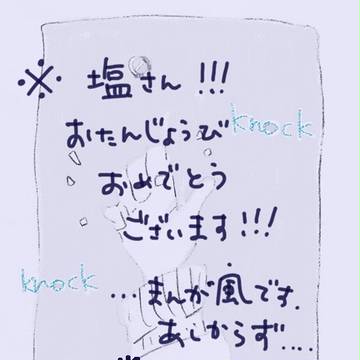 ※ 塩さん!!!
おたんじょうび
knock
おめでとう
ございます!!!
knock
…まんが風です.
あしからず....